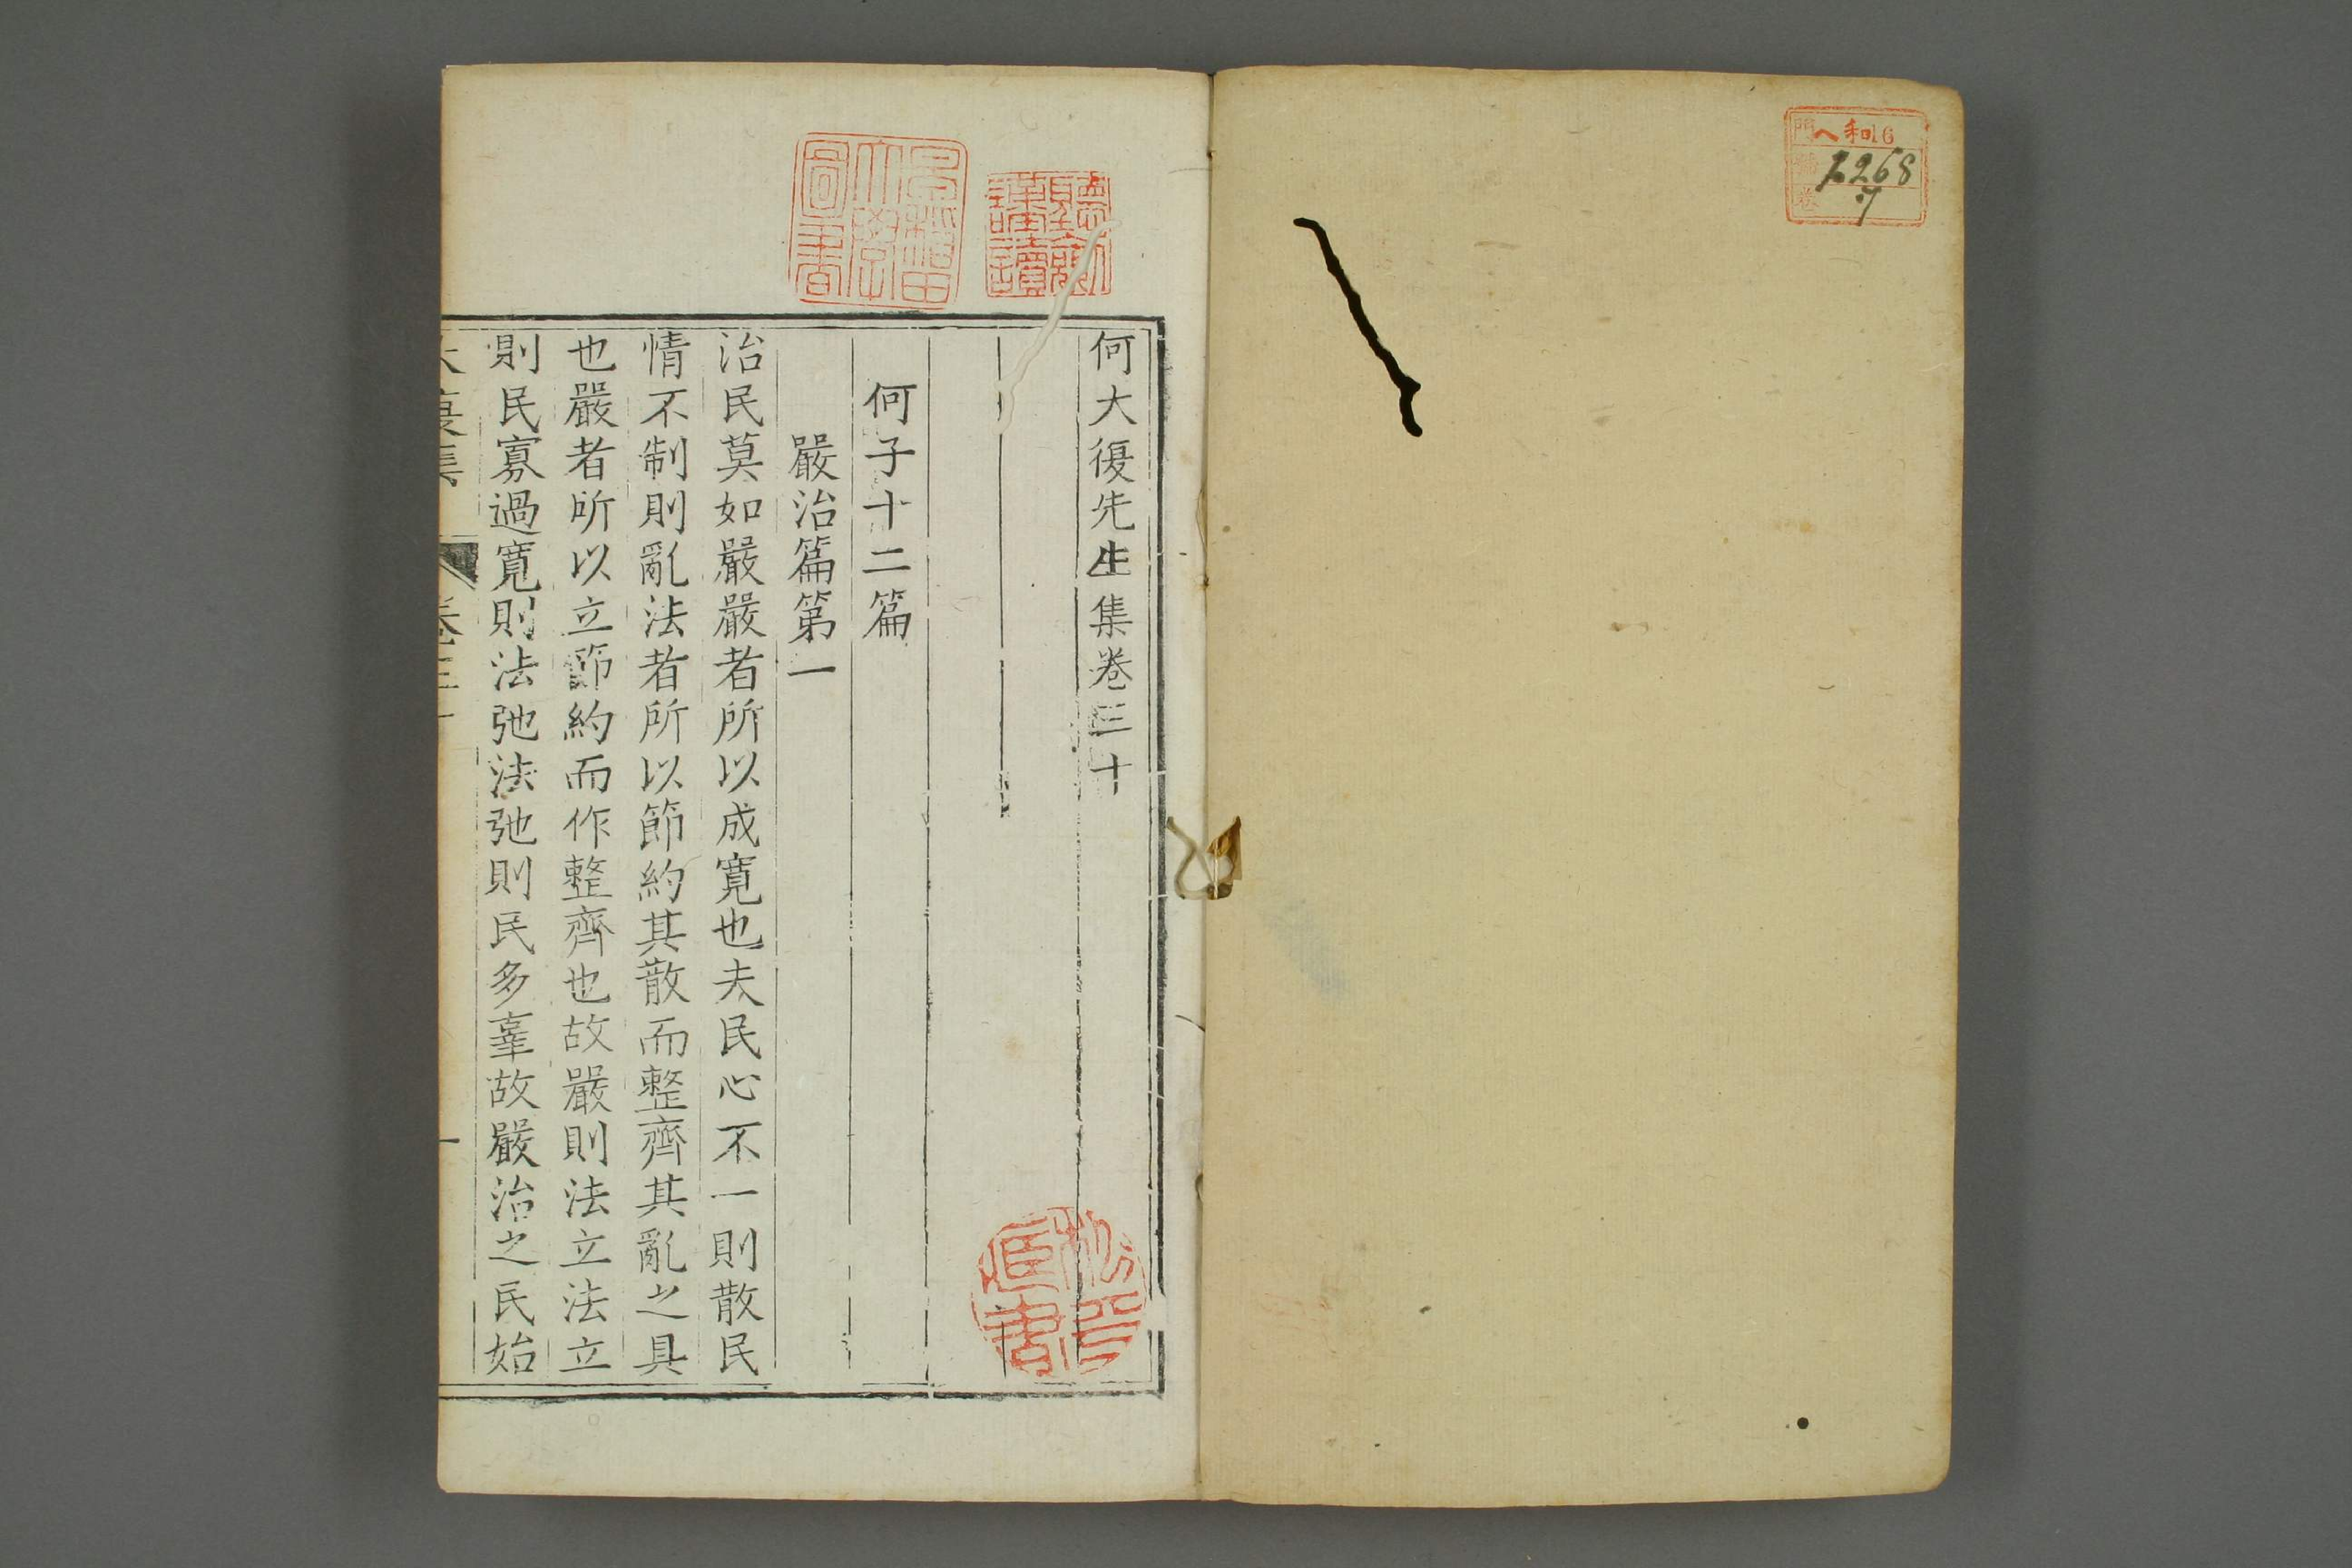 和16
1268
7
早稲田大學圖書
何大復先生集卷三十
何子十二篇
嚴治篇第一
治民莫如嚴嚴者所以成寬也夫民心不一則散民
情不制則亂法者所以節約其散而整齊其亂之具
也嚴者所以立節約而作整齊也故嚴則法立法立
則民寡過寬則法弛法弛則民多辜故嚴治之民始
大復集
卷三十
一